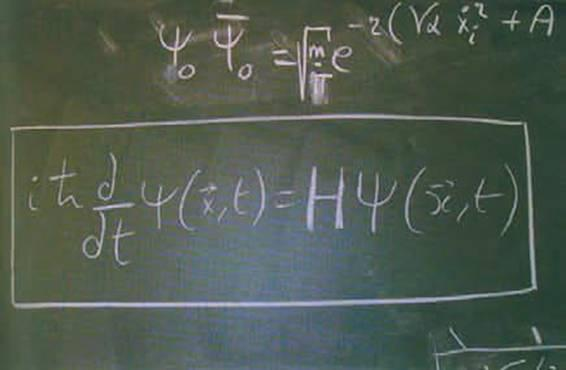 Ψ₀ Ψ̄₀ = √(m/π) e^(-2(√α ẋᵢ² + A
iħ d/dt Ψ(x⃗,t) = HΨ(x⃗,t)